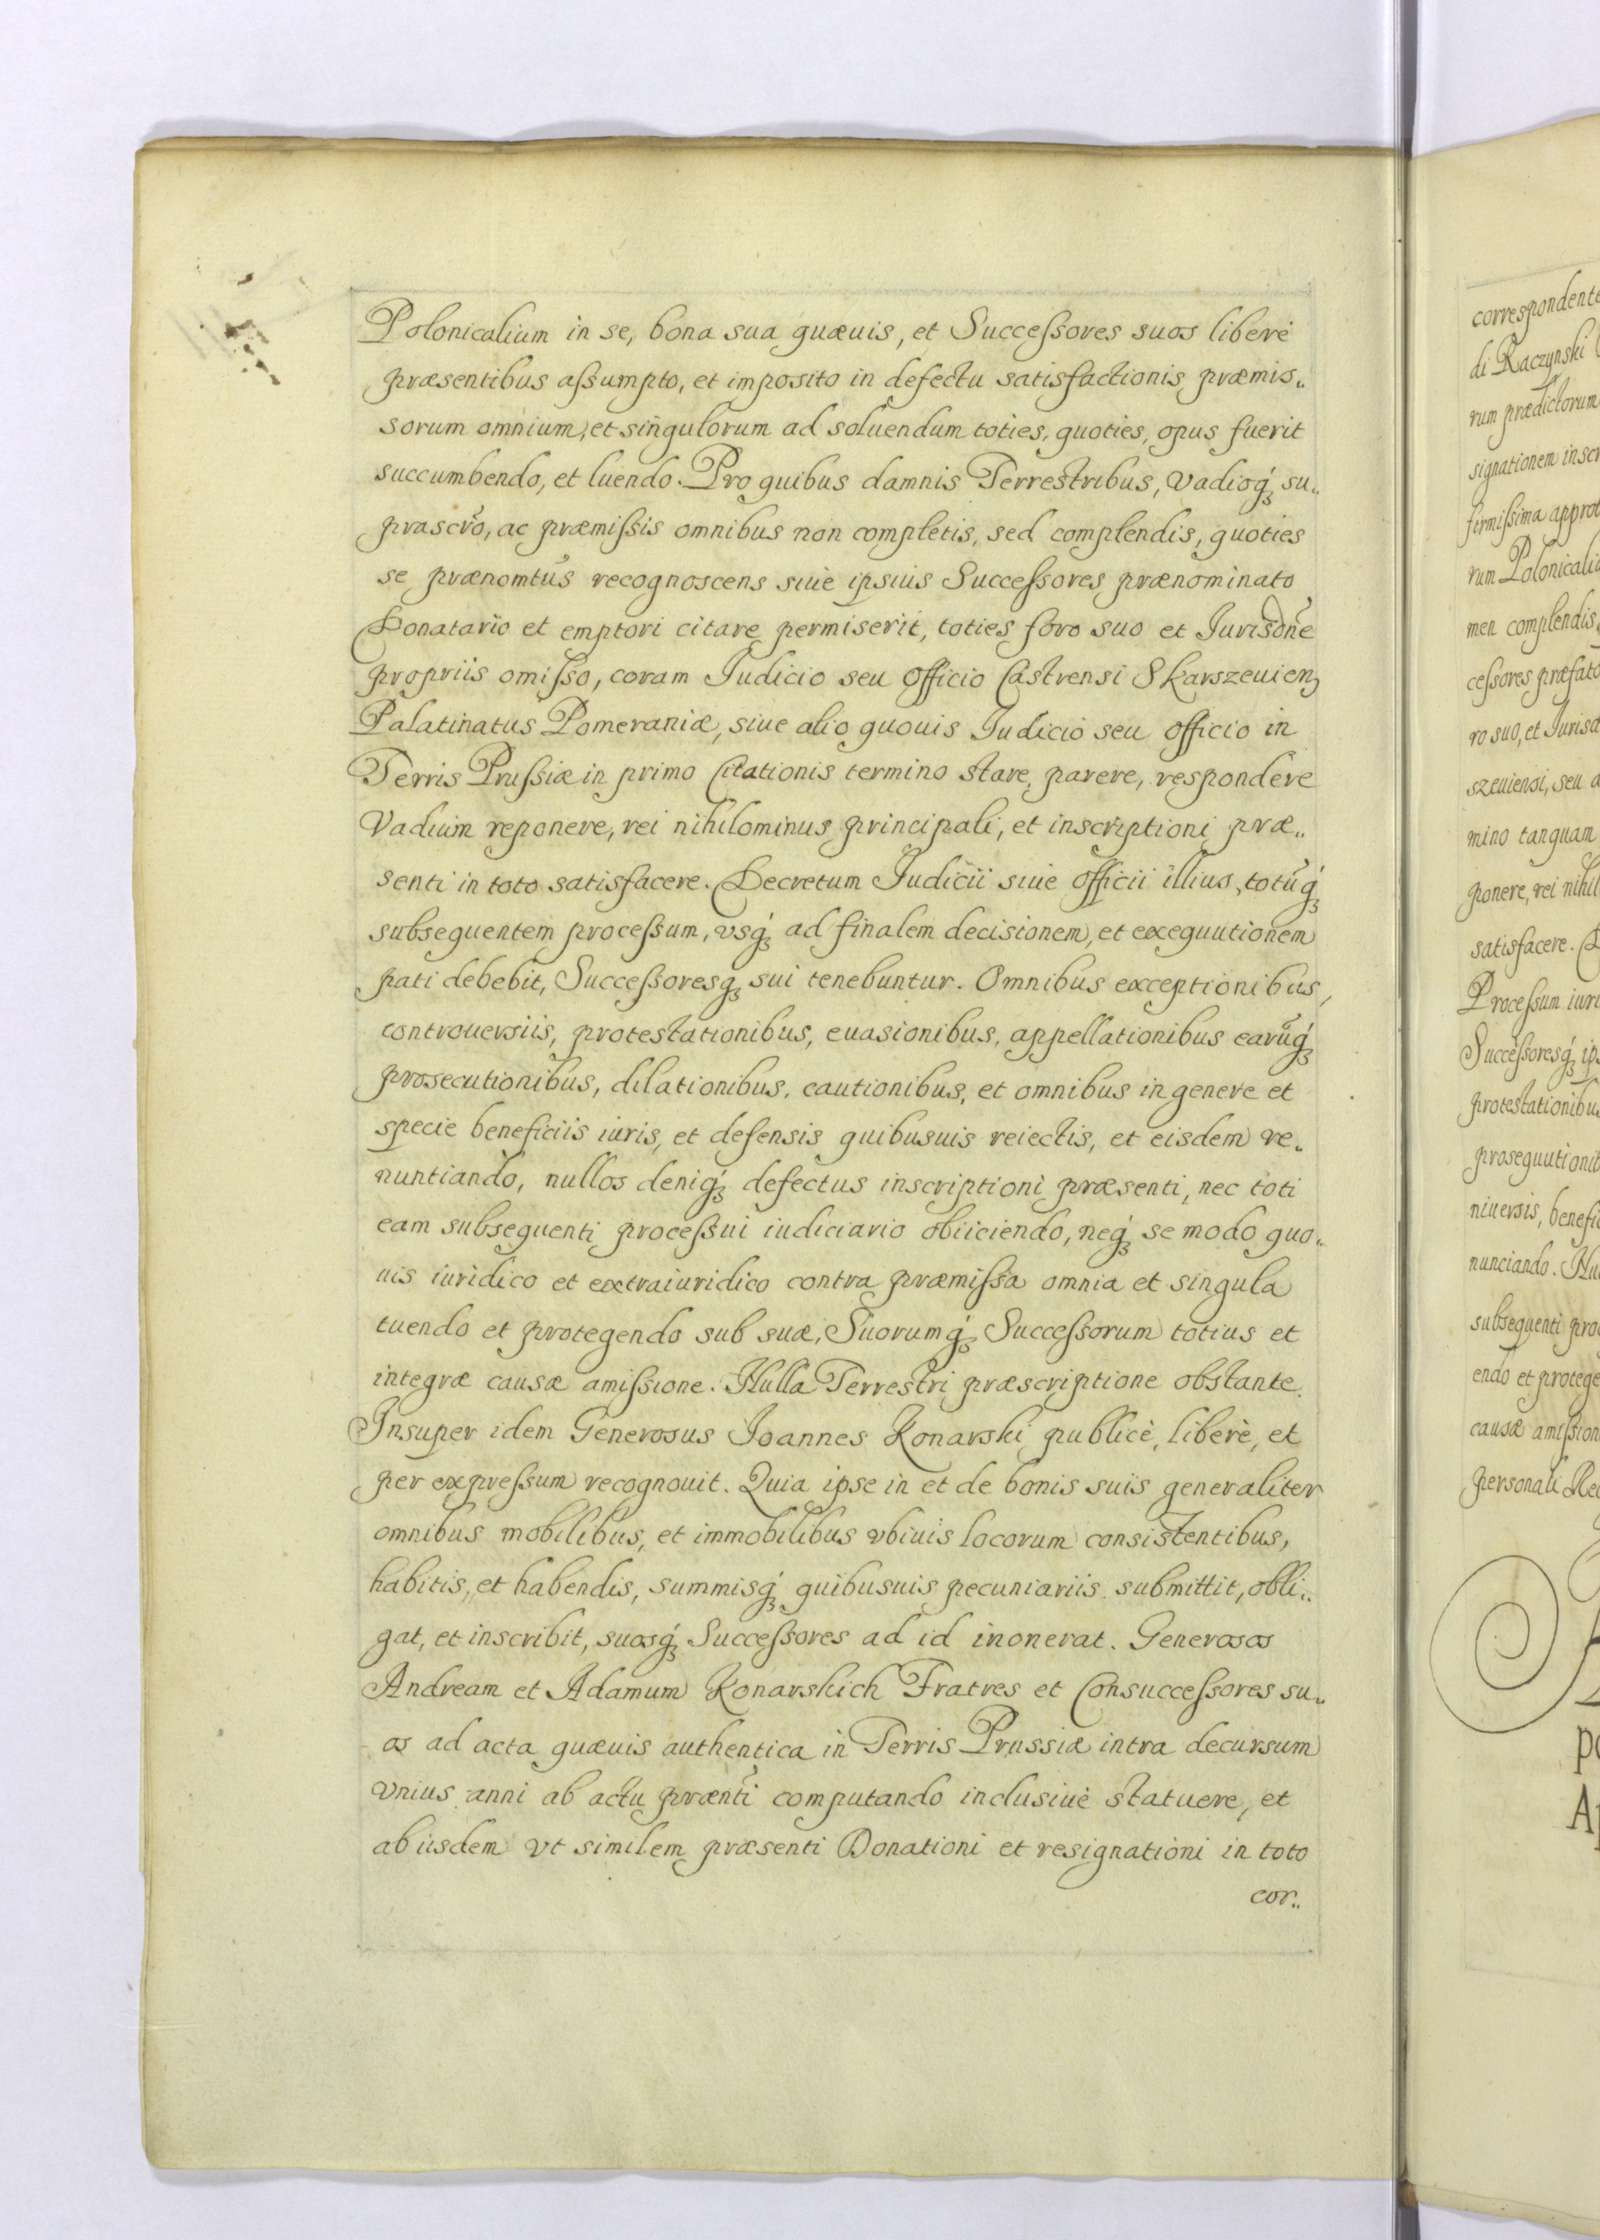 Polonicalium in se, bona sua quæuis, et Succeſsores suos liberè
præsentibus aſsumpto, et imposito in defectu satisfactionis præmis„
sorum omnium, et singulorum ad soluendum toties, quoties, opus fuerit
succumbendo, et luendo. Pro quibus damnis Terrestribus, Vadioq́ꝫ su„
prascr̃o, ac præmiſsis omnibus non completis, sed complendis, quoties
se prænomtũs recognoscens siuè ipsius Succeſsores prænominato
Donatario et emptori citare permiserit, toties foro suo et Jurisdõne
propriis omiſso, coram Judicio seu officio Castrensi Skarszeuienꝫ
Palatinatus Pomeraniæ, siue alio quouis Judicio seu officio in
Terris Pruſsiæ in primo Citationis termino stare, parere, respondere
Vadium reponere, rei nihilominus principali, et inscriptioni præ„
senti in toto satisfacere. Decretum Judicii siue officii illius, totũq́ꝫ
subsequentem proceſsum, vsq́ꝫ ad finalem decisionem, et exequutionem
pati debebit, Succeſsoresqꝫ sui tenebuntur. Omnibus exceptionibus,
controuersiis, protestationibus, euasionibus, appellationibus earũq́ꝫ
prosecutionibus, dilationibus, cautionibus, et omnibus in genere et
specie beneficiis iuris, et defensis quibusuis reiectis, et eisdem re„
nuntiando, nullos deniq́ꝫ defectus inscriptioni præsenti, nec toti
eam subsequenti proceſsui iudiciario obiiciendo, neq́ꝫ se modo quo„
uis iuridico et extraiuridico contra præmiſsa omnia et singula
tuendo et protegendo sub suæ, Suorumq́ꝫ Succeſsorum totius et
integræ causæ amiſsione. Nulla Terrestri præscriptione obstante.
Insuper idem Generosus Joannes Konarski publicè, liberè, et
per expreſsum recognouit. Quia ipse in et de bonis suis generaliter
omnibus mobilibus, et immobilibus vbiuis locorum consistentibus,
habitis, et habendis, summisq́ꝫ quibusuis pecuniariis submittit, obli„
gat, et inscribit, suosq́ꝫ Succeſsores ad id inonerat. Generosos
Andream et Adamum Konarskich Fratres et Consucceſsores su„
os ad acta quæuis authentica in Terris Prussiæ intra decursum
vnius anni ab actu præntĩ computando inclusiuè statuere, et
ab iisdem vt similem præsenti Donationi et resignationi in toto
cor„
correspondent
di Raczynski
rum prædictorum
signationem inscr
firmiſsima approb
rum Polonicaliu
men complendis,
ceſsores præfato
ro suo, et Jurisd
szeuiensi, seu a
mino tanquam
ponere, rei nihil
satisfacere. D
Proceſsum iuri
Succeſsoresq́ꝫ ip
protestationibus
prosequutionib
niuersis, benefi
nunciando. Nu
subsequenti pro
endo et protege
causæ amiſsion
personali Rec
po
Ap